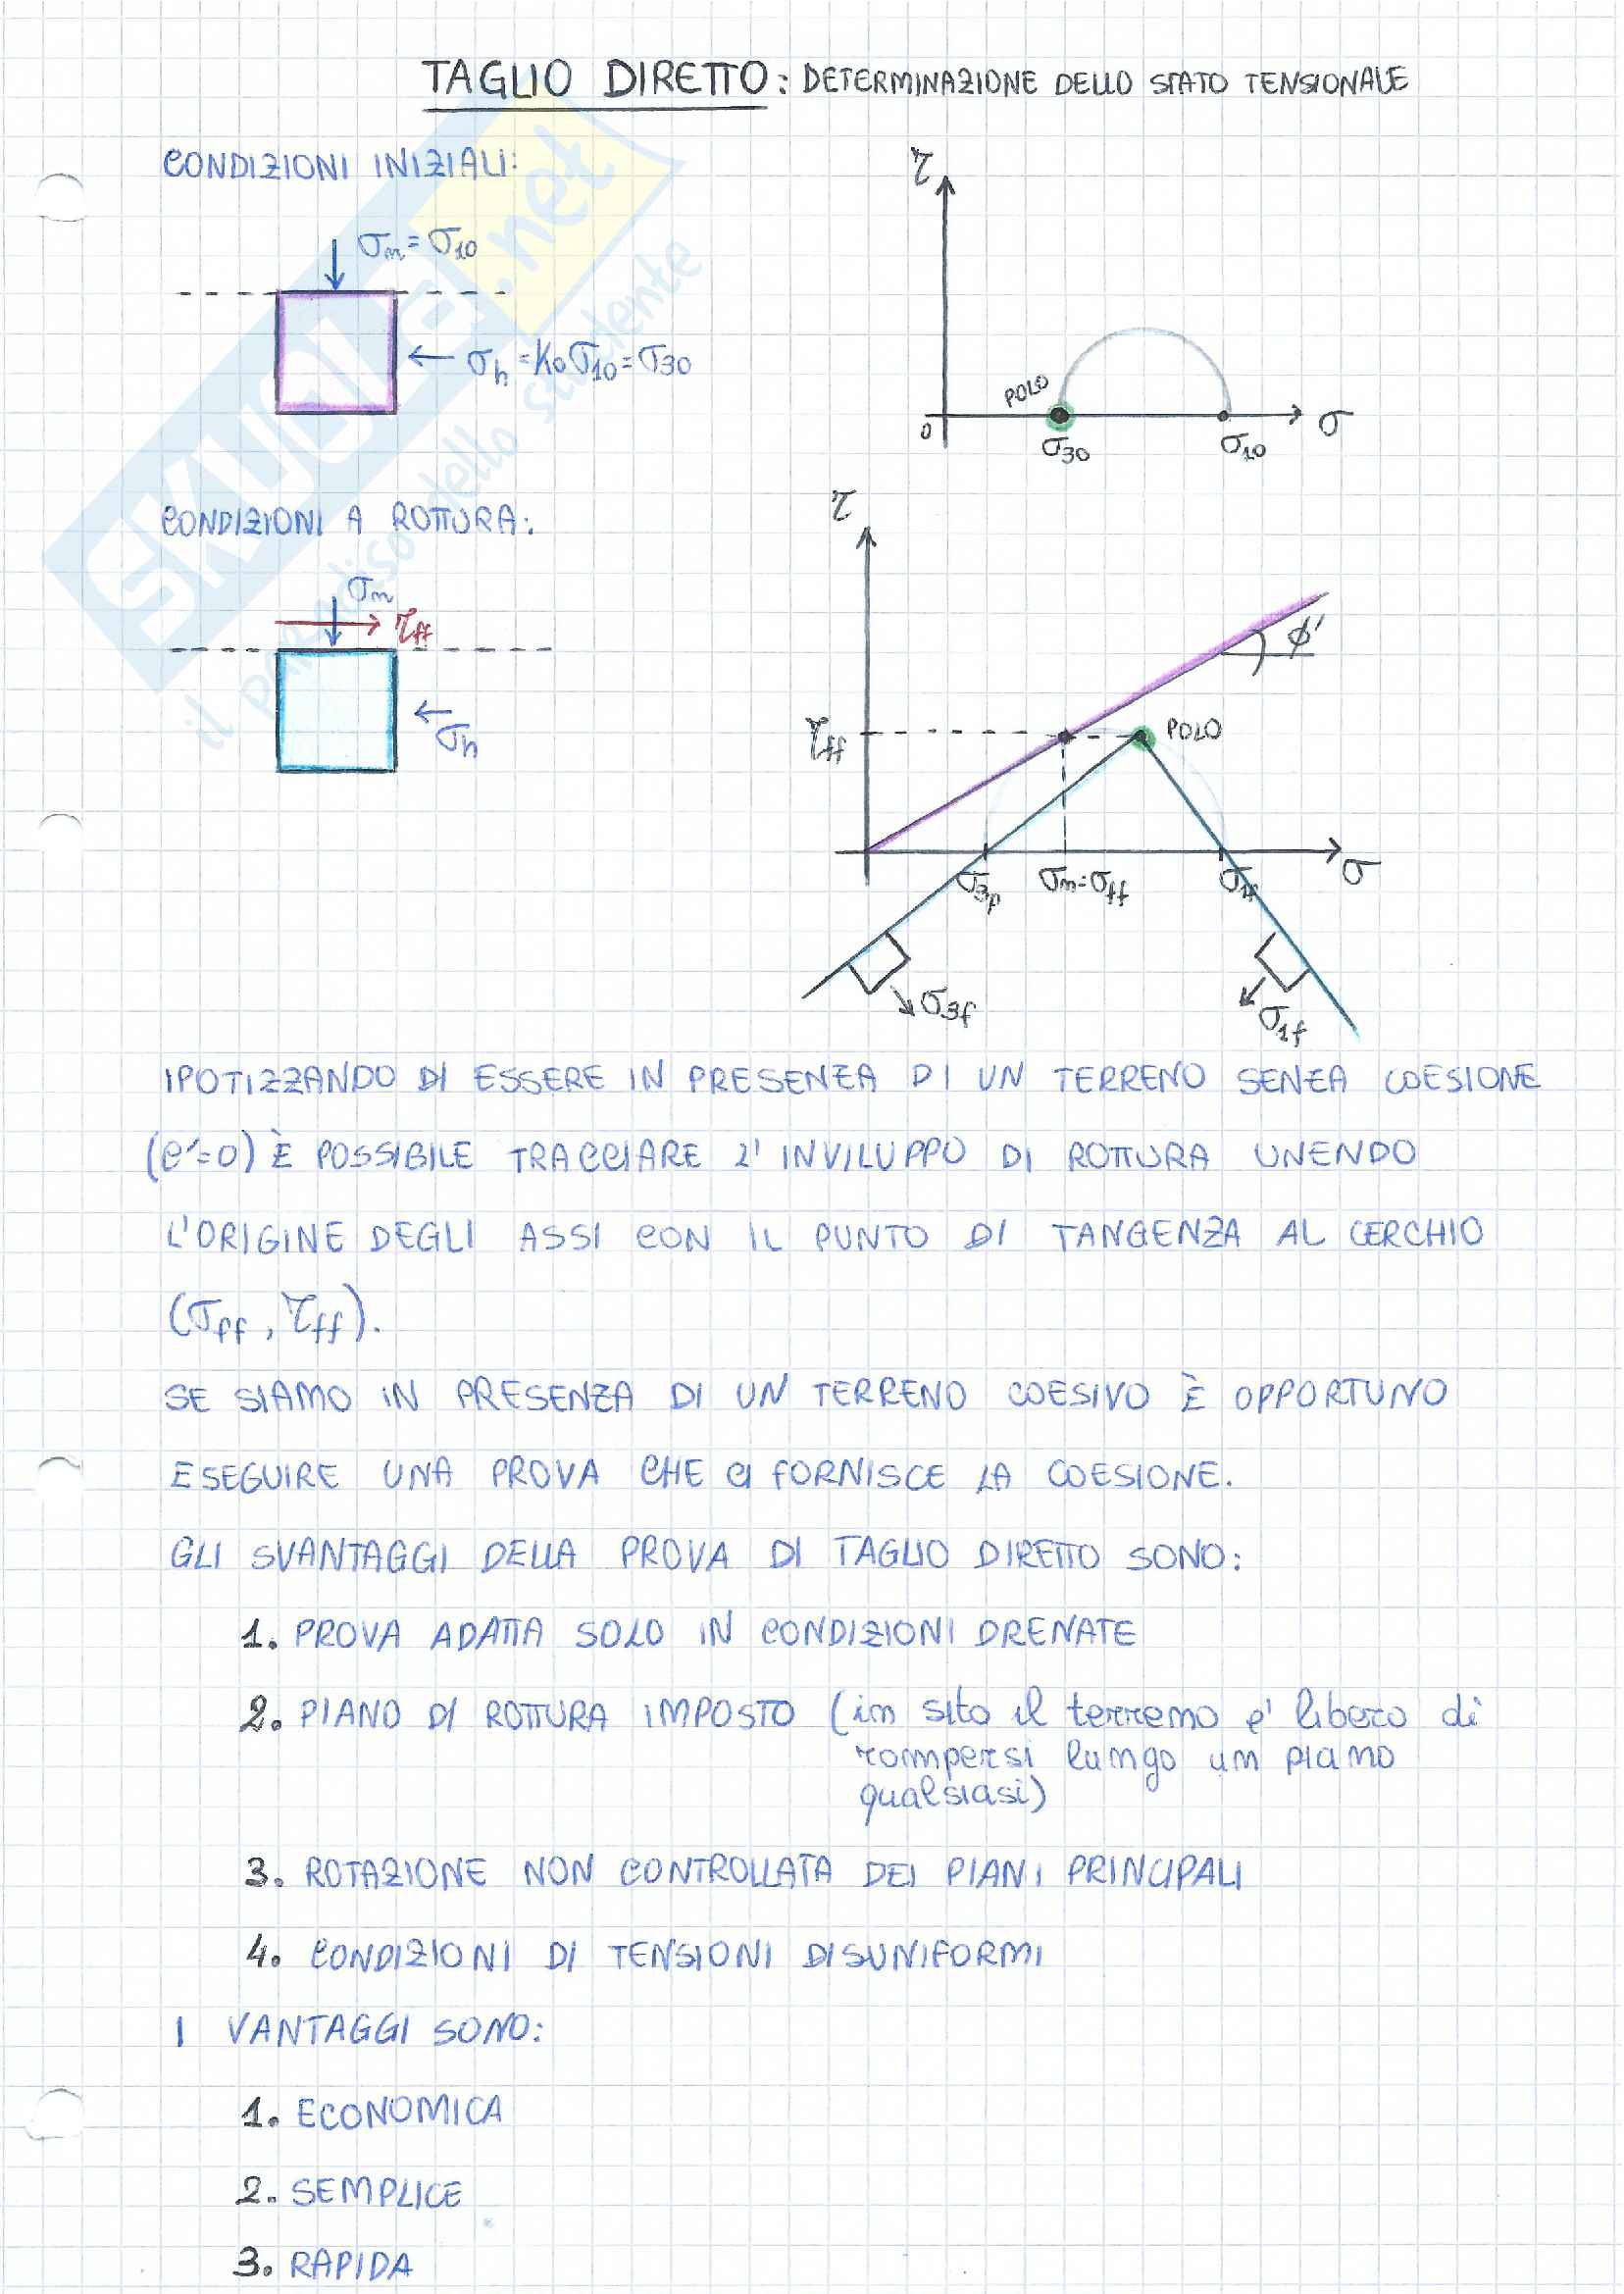 TAGLIO DIRETTO: DETERMINAZIONE DELLO STATO TENSIONALE
CONDIZIONI INIZIALI:
σn = σ10
σh = K0 σ10 = σ30
τ
POLO
0
σ30
σ10
σ
CONDIZIONI A ROTTURA:
σn
τff
σh
τ
φ'
τff
POLO
σ3f
σn=σff
σ1f
σ
σ3f
σ1f
IPOTIZZANDO DI ESSERE IN PRESENZA DI UN TERRENO SENZA COESIONE
(c'=0) È POSSIBILE TRACCIARE L'INVILUPPO DI ROTTURA UNENDO
L'ORIGINE DEGLI ASSI CON IL PUNTO DI TANGENZA AL CERCHIO
(σff, τff).
SE SIAMO IN PRESENZA DI UN TERRENO COESIVO È OPPORTUNO
ESEGUIRE UNA PROVA CHE CI FORNISCE LA COESIONE.
GLI SVANTAGGI DELLA PROVA DI TAGLIO DIRETTO SONO:
1. PROVA ADATTA SOLO IN CONDIZIONI DRENATE
2. PIANO DI ROTTURA IMPOSTO (in sito il terreno e' libero di
rompersi lungo un piano
qualsiasi)
3. ROTAZIONE NON CONTROLLATA DEI PIANI PRINCIPALI
4. CONDIZIONI DI TENSIONI DISUNIFORMI
I VANTAGGI SONO:
1. ECONOMICA
2. SEMPLICE
3. RAPIDA
SKUOLA.net
il paradiso dello studente